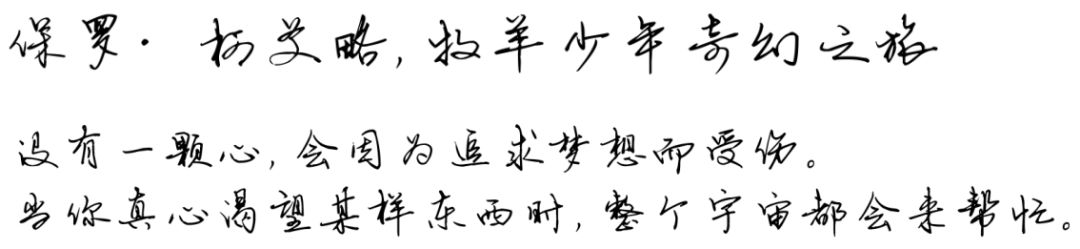 保罗·柯艾略,牧羊少年奇幻之旅
没有一颗心,会因为追求梦想而受伤。
当你真心渴望某样东西时,整个宇宙都会来帮忙。